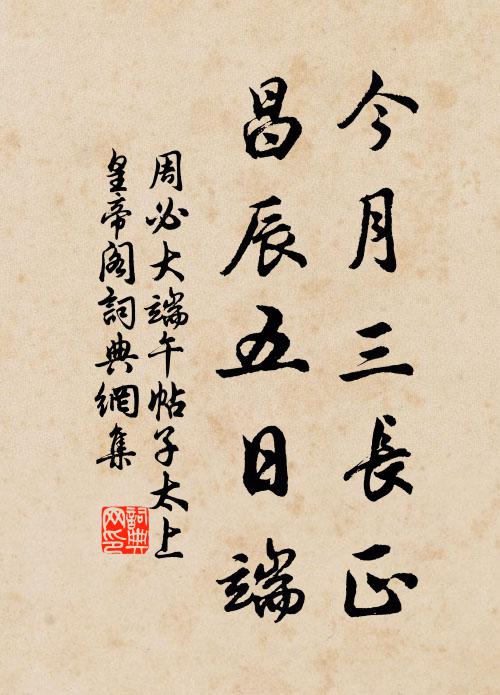 今月三長正
昌辰五日端
周必大端午帖子太上
皇帝阁詞典網集
詞典
网印